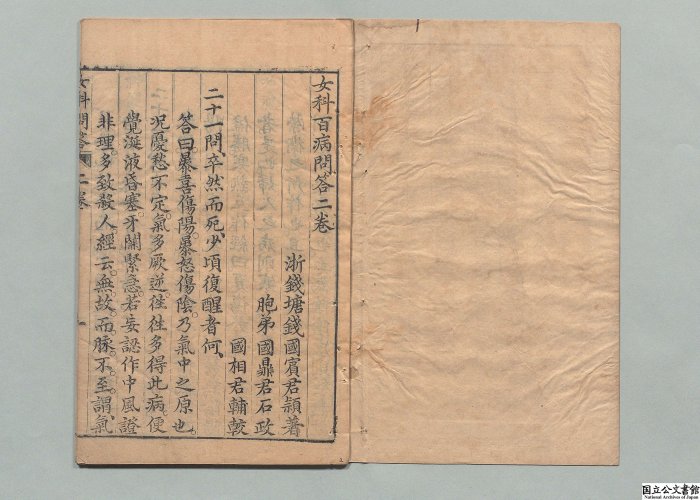 女科百病問答二卷
浙錢塘錢國賓君頴著
胞弟國鼎君石政
國相君輔較
二十一問卒然而死少頃復醒者何
答曰暴喜傷陽暴怒傷陰乃氣中之原也
况憂愁不定氣多厥逆徃徃多得此病便
覺涎液昏塞牙關緊急若妄認作中風證
非理多致殺人經云無故而脉不至謂氣
女科問答 二卷
国立公文書館
National Archives of Japan